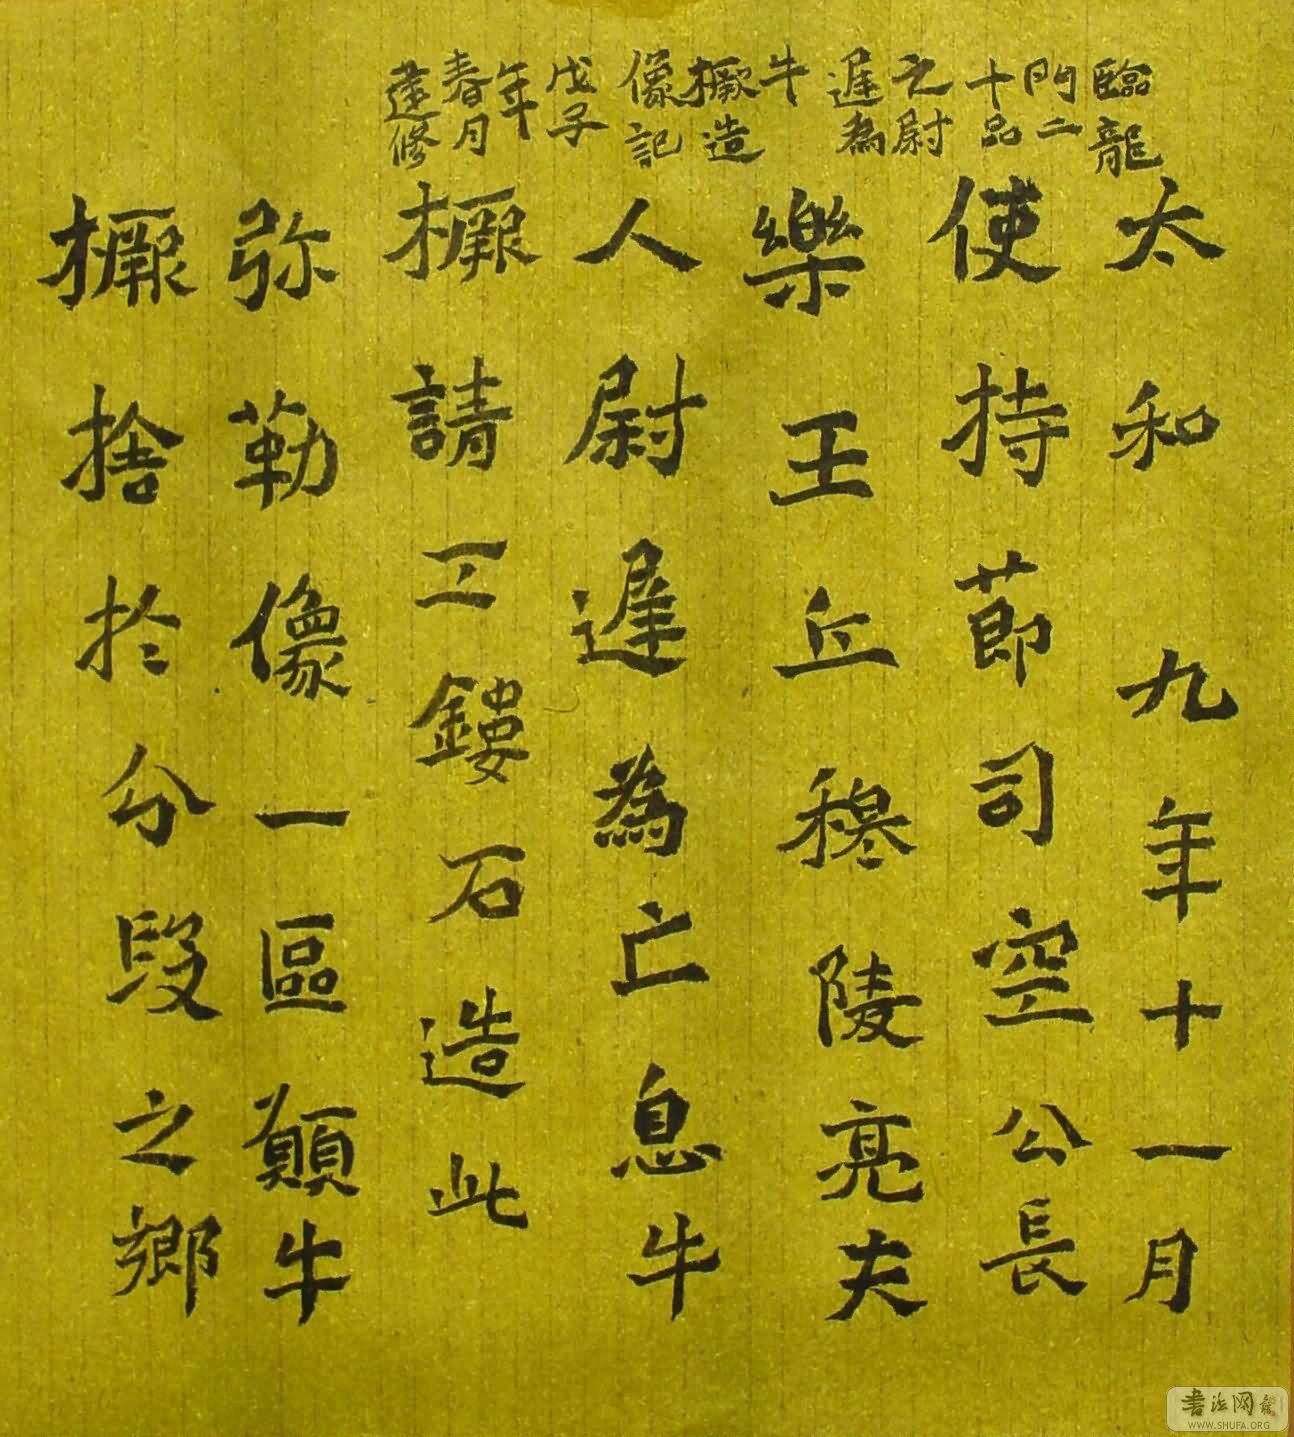 臨龍
門二
十品
之尉
遲為
牛
橛造
像記
戊子
年
春月
修
太和九年十一月
使持節司空公長
樂王丘穆陵亮夫
人尉遲為亡息牛
橛請工鏤石造此
弥勒像一區願牛
橛捨於分段之鄉
書法网
WWW.SHUFA.ORG